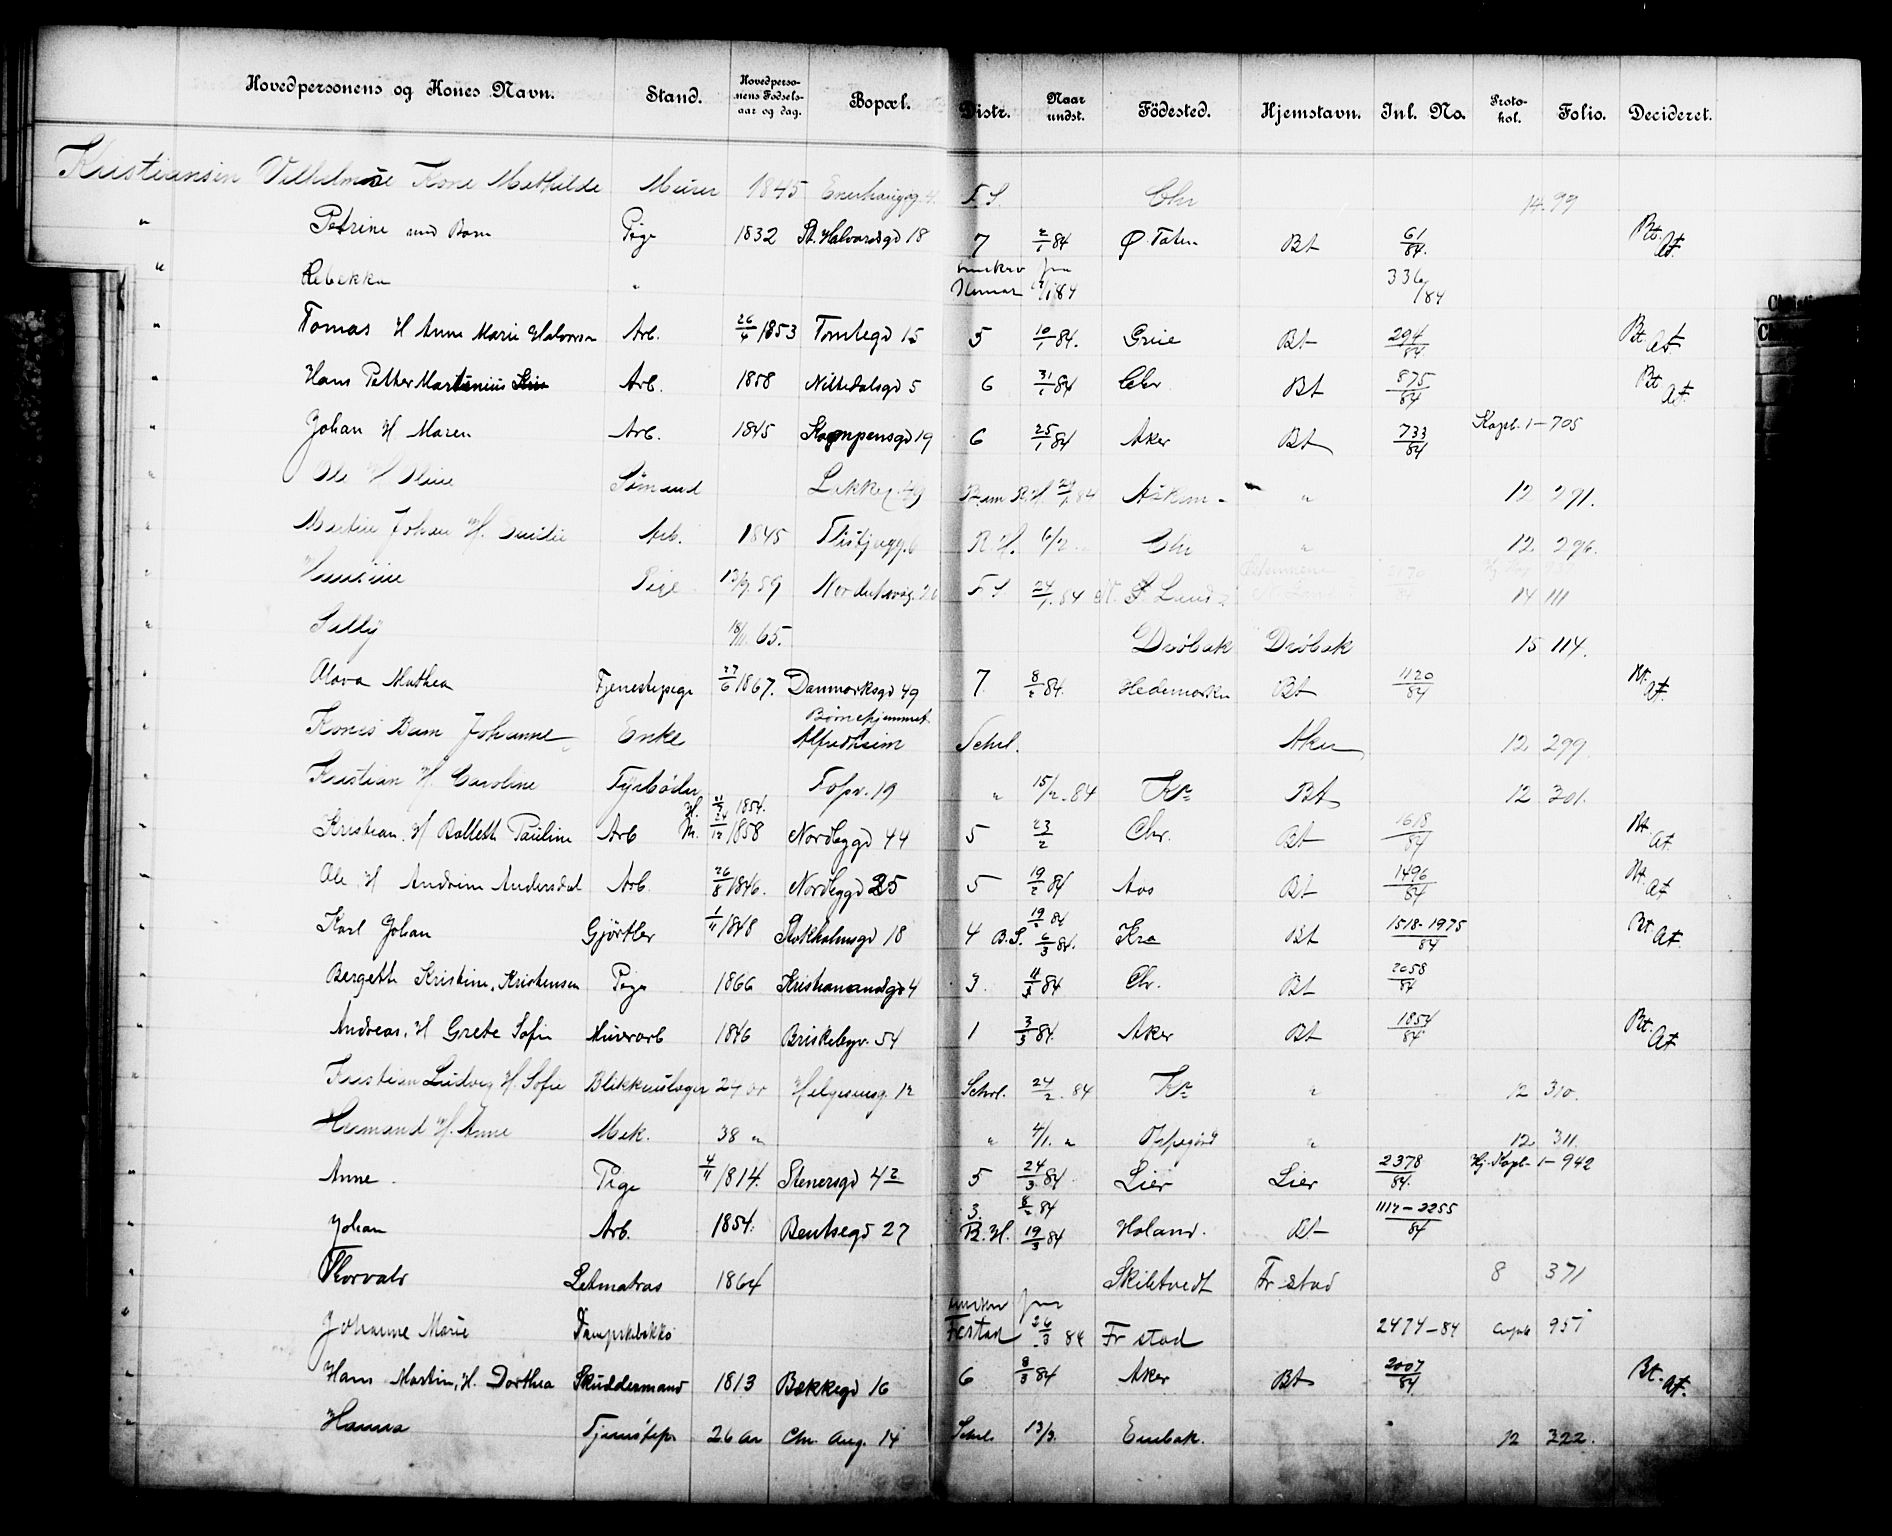 Hovedpersonens og Kones Navn. Stand. Hovedpersonens Fødselsaar og dag. Bopæl. Distr. Naar undst. Födested. Hjemstavn. Inl. No. Protokol. Folio. Decideret.
Kristiansen Vilhelm Kone Mathilde Murer 1845 Enerhaugg. 4. F.S. Chr 14. 99
" Petrine med Barn Pige 1832 St. Halvardsgd 18 7 2/1 84 Ø. Toten Bt 61/84. Bt. At.
" Rebekka " 336/84
" Tomas H Anne Marie Halvorsen Arb. 26/4 1853 Tomtegd 15 5 10/1 84. Grue Bt 294/84 Bt. At.
" Hans Petter Martinius Arb. 1858 Nittedalsgd 5 6 31/1 84 Chr Bt 875/84 Bt. At.
" Johan H Maren Arb. 1845 Kampensgd 19 6 25/1 84 Aker Bt 733/84 Kapt. 1-705
" Ole H Oline Sømand R.H. 29/1 84 Askim " 12 291.
" Martin Johan H. Emilie Arb. 1845 R.H. 6/2 Chr " 12. 296.
" Pige 13/9 59 F.S. 24/1 84 14 111
" Selly 18/11 65. Drøbak Drøbak 15 114.
" Olava Mathea Tjenestepige 27/6 1867. Danmarksgd 49 7. 8/2 84. Hedemarken Bt 1120/84 Bt. At.
" Kones Barn Johanne Enke Børnehjemmet Alfredheim Schul. Aker 12 299.
" Kristian H. Caroline Fyrbøder 19 " 15/2 84 Kr. Bt 12 301.
" Kristian. H Bolleth Pauline Arb H. 21/7 1854. M. 24/12 1858 Nordbygd 44 5 23/2 Chr. Bt 1618/84 Bt. At.
" Ole. H Andrine Andersdal Arb. 26/8 1846. Nordbygd 25 5 19/2 84 Aas Bt 1496/84 Bt. At.
" Karl Johan Gjörtler 1/11 1848 Stokholmsgd 18 4 B.S. 19/2 84 6/3 84. Kra Bt 1518-1975/84 Bt. At.
" Bergeth Kristine, Kristensen Pige 1866 Kristiansandsgd 4 3. 11/3 84 Chr. Bt 2058/84
" Andreas. H Grete Sofie Murarb 1846 Briskebyv. 54 1 3/3 84. Aker Bt 1854/84 Bt. At.
" Kristian Ludvig H. Sofie Blikkenslager 27 år Helgesensg. 12 Schul. 24/2. 84 Kr. " 12 310.
" Hermand H. Anne Mek. 38 " " 4/1. " Oppegård " 12. 311.
" Anne. Pige 4/11 1814. Stenersgd 4 5 24/3 84 Lier Lier 2378/84. Hj. Kapt. 1-942
" Johan Arb. 1854. Bentsegd 27 3. R.H. 8/2 84 19/3 84 Høland. Bt 1112-2255/84
" Thorvald Letmatros 1864 Skibtvedt Fr stad 8 371
" Johanne Marie Dampskibskk. Frstad 26/3 84 Fr stad 2474-84 951
" Hans Martin, H. Dorthea Skuddermand 1813 Bekkegd 16 6 8/3 84 Aker Bt 2007/84 Bt. At.
" Hanna Tjenestep. 26 år Chr. Aug. 14 Schul. 13/3. Enebak. 12 322.